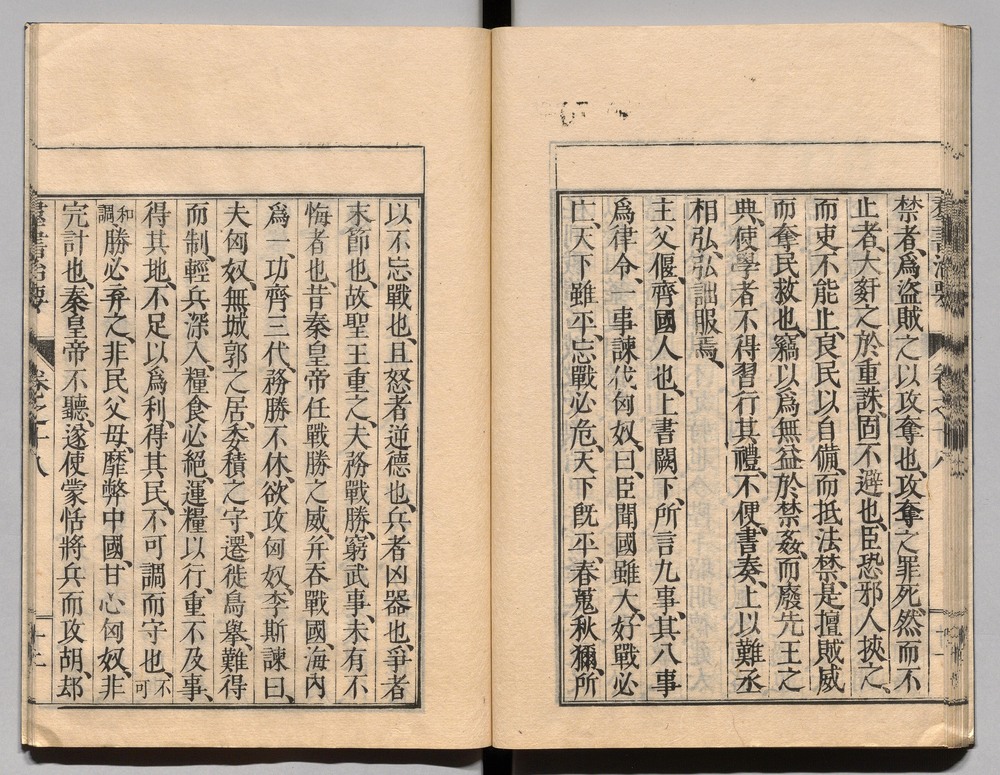 禁者爲盜賊之以攻奪也、攻奪之罪死、然而不
止者、大姧之於重誅、固不避也、臣恐邪人挾之、
而吏不能止、良民以自備、而抵法禁、是擅賊威
而奪民救也、竊以爲無益於禁姦、而廢先王之
典、使學者不得習行其禮、不便、書奏、上以難丞
相弘、弘詘服焉、
主父偃、齊國人也、上書闕下、所言九事、其八事
爲律令、一事諫伐匈奴、曰、臣聞國雖大、好戰必
亡、天下雖平、忘戰必危、天下旣平、春蒐秋獮、所
以不忘戰也、且怒者逆德也、兵者凶器也、爭者
末節也、故聖王重之、夫務戰勝、窮武事、未有不
悔者也、昔秦皇帝任戰勝之威、幷吞戰國、海內
爲一、功齊三代、務勝不休、欲攻匈奴、李斯諫曰、
夫匈奴、無城郭之居、委積之守、遷徙鳥擧、難得
而制、輕兵深入、糧食必絕、運糧以行、重不及事、
得其地、不足以爲利、得其民、不可調而守也、不可
和調勝必弃之、非民父母、靡弊中國、甘心匈奴、非
完計也、秦皇帝不聽、遂使蒙恬將兵而攻胡、却
羣書治要 卷之十八 十二